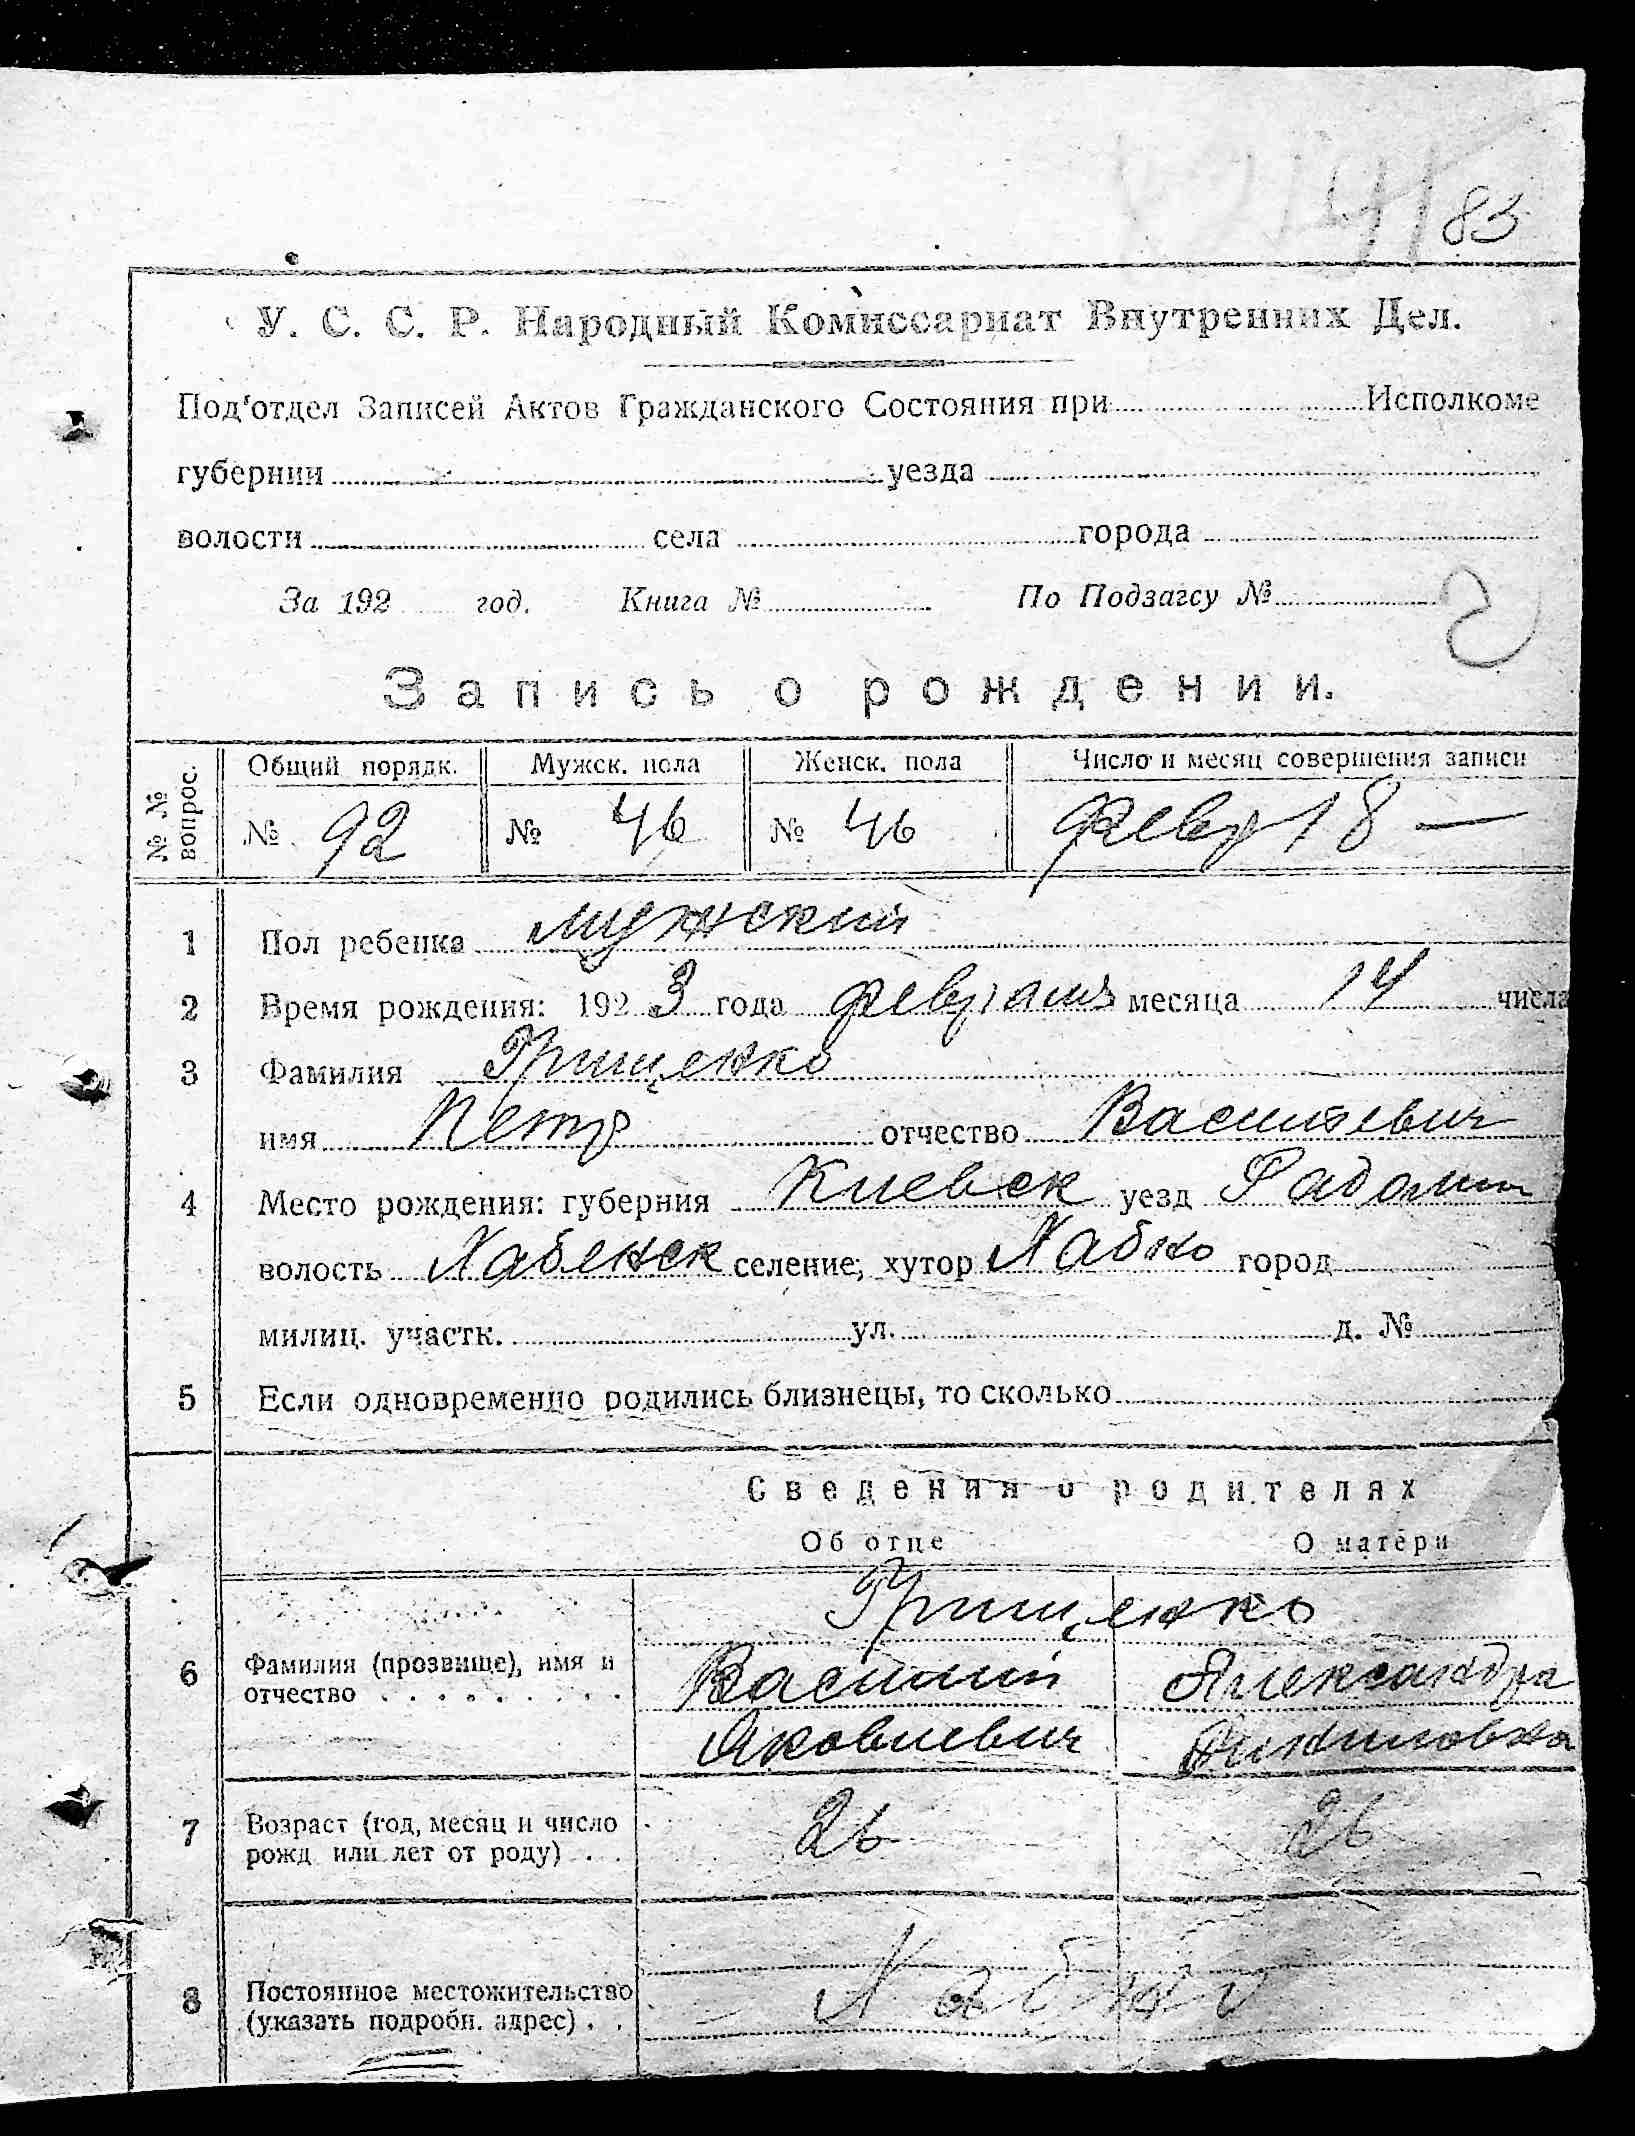 83
У. С. С. Р. Народный Комиссариат Внутренних Дел.
Под'отдел Записей Актов Гражданского Состояния при Исполкоме
губернии уезда
волости села города
За 192 год. Книга № По Подзагсу №
2
Запись о рождении.
№ № вопрос. Общий порядк. Мужск. пола Женск. пола Число и месяц совершения записи
№ 92 № 46 № 46 февр 18 —
1 Пол ребенка мужский
2 Время рождения: 1923 года февраля месяца 14 числа
3 Фамилия Грищенко
имя Петр отчество Василевич
4 Место рождения: губерния Киевск уезд Радомы
волость Хабенск селение, хутор Хабно город
милиц. участк. ул. д. №
5 Если одновременно родились близнецы, то сколько
Сведения о родителях
Об отце О матери
Грищенко
6 Фамилия (прозвище), имя и Василий Александра
отчество Яковлевич
7 Возраст (год, месяц и число 26 26
рожд или лет от роду)
8 Постоянное местожительство Хабно
(указать подробн. адрес)